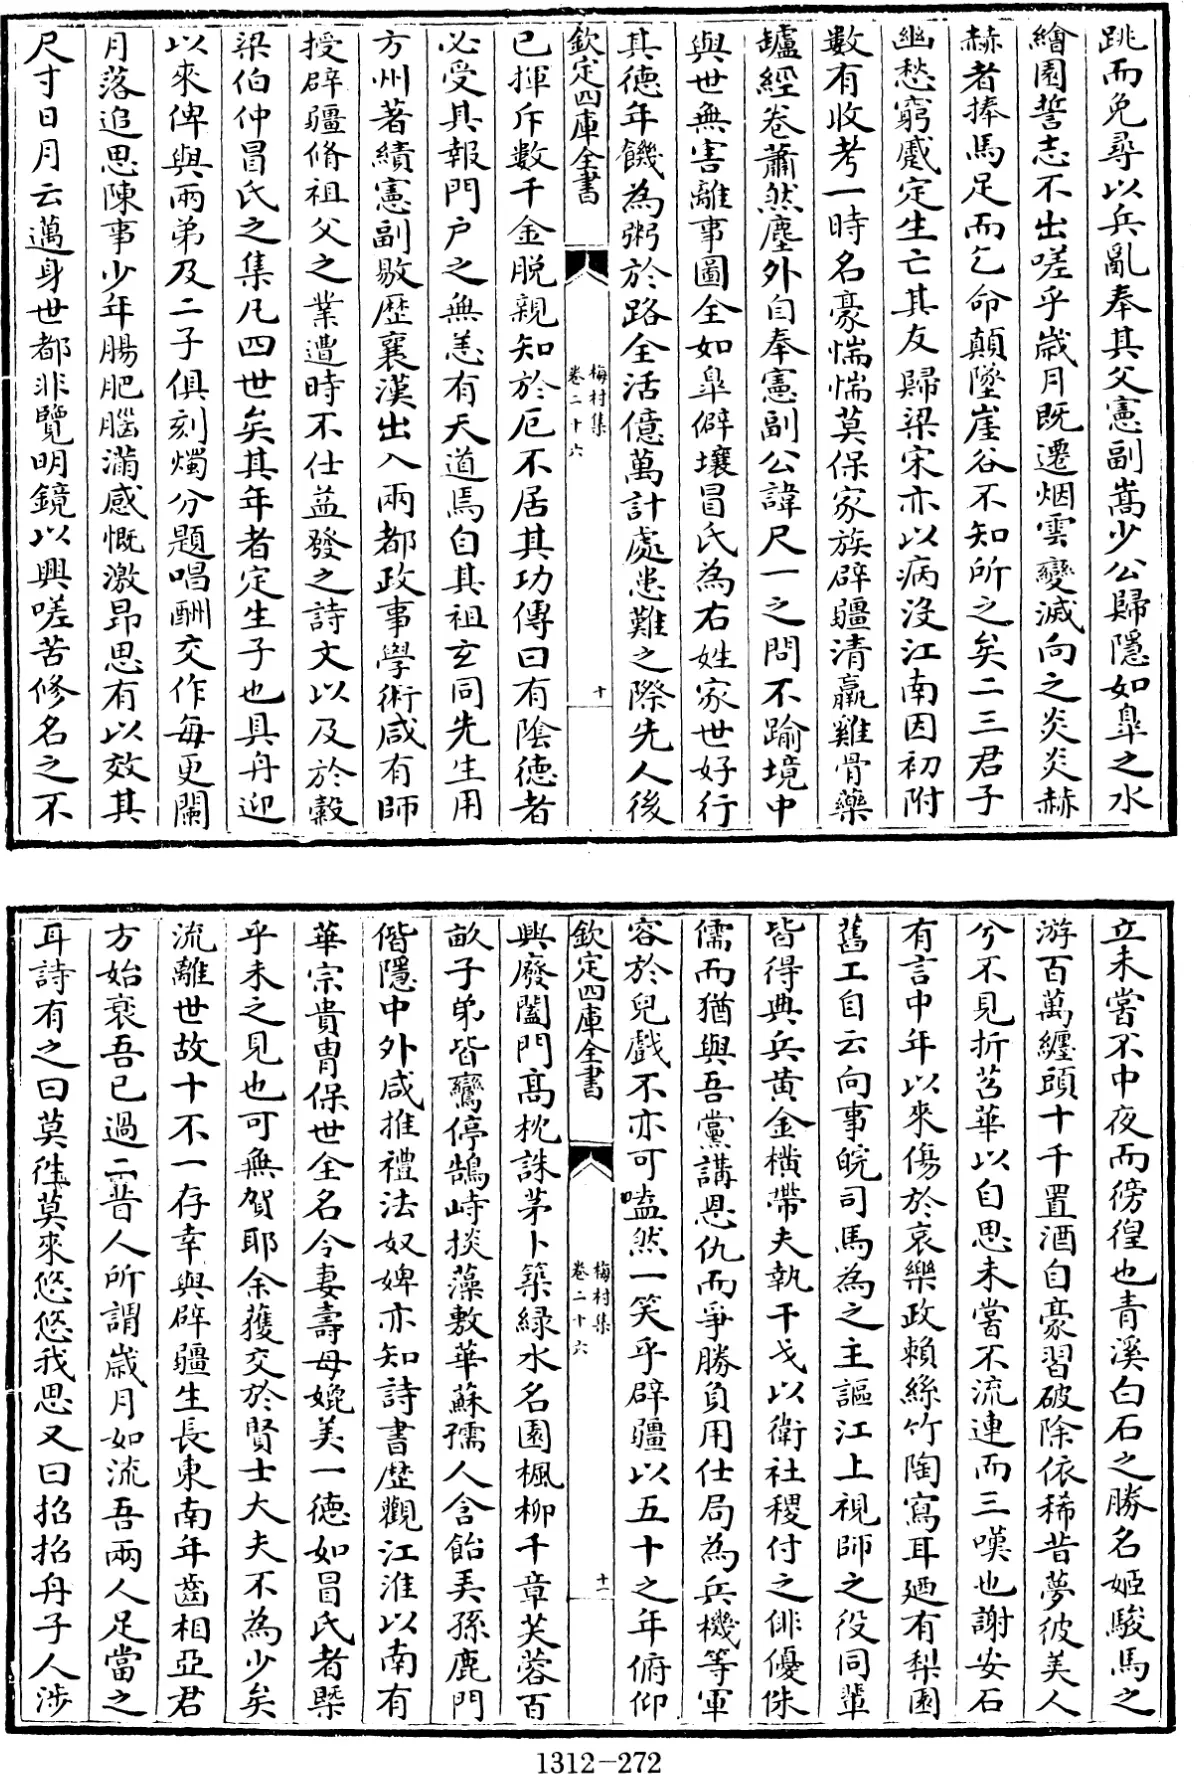 跳而免尋以兵亂奉其父憲副嵩少公歸隱如臯之水
繪園誓志不出嗟乎嵗月既遷烟雲變滅向之炎炎赫
赫者捧馬足而乞命顛墜崖谷不知所之矣二三君子
幽愁窮蹙定生亡其友歸梁宋亦以病沒江南因初附
數有收考一時名豪惴惴莫保家族辟疆清羸雞骨藥
罏經卷蕭然塵外自奉憲副公諱尺一之問不踰境中
與世無害離事圖全如臯僻壤冒氏為右姓家世好行
其德年饑為粥於路全活億萬計處患難之際先人後
欽定四庫全書
梅村集
卷二十六
十
已揮斥數千金脱親知於厄不居其功傳曰有陰徳者
必受其報門户之無恙有天道焉自其祖玄同先生用
方州著績憲副敭歴襄漢出入兩都政事學術咸有師
授辟疆脩祖父之業遭時不仕益發之詩文以及於糓
梁伯仲冒氏之集凡四世矣其年者定生子也具舟迎
以來俾與兩弟及二子俱刻燭分題唱酬交作每更闌
月落追思陳事少年腸肥腦滿感慨激昂思有以效其
尺寸日月云邁身世都非覽明鏡以興嗟苦修名之不
立未嘗不中夜而徬徨也青溪白石之勝名姬駿馬之
游百萬纏頭十千置酒自豪習破除依稀昔夢彼美人
兮不見折苕華以自思未嘗不流連而三嘆也謝安石
有言中年以來傷於哀樂政賴絲竹陶寫耳廼有梨園
舊工自云向事皖司馬為之主謳江上視師之役同輩
皆得典兵黄金横帶夫執干戈以衛社稷付之俳優侏
儒而猶與吾黨講恩仇而爭勝負用仕局為兵機等軍
容於兒戲不亦可嗑然一笑乎辟疆以五十之年俯仰
欽定四庫全書
梅村集
卷二十六
十一
興廢闔門髙枕誅茅卜築緑水名園楓柳千章芙蓉百
畝子弟皆鸞停鵠峙掞藻敷華蘇孺人含飴弄孫鹿門
偕隱中外咸推禮法奴婢亦知詩書歴觀江淮以南有
華宗貴胄保世全名令妻壽母媲美一德如冒氏者槩
乎未之見也可無賀耶余獲交於賢士大夫不為少矣
流離世故十不一存幸與辟疆生長東南年齒相亞君
方始衰吾已過二昔人所謂嵗月如流吾兩人足當之
耳詩有之曰莫往莫來悠悠我思又曰招招舟子人涉
1312-272